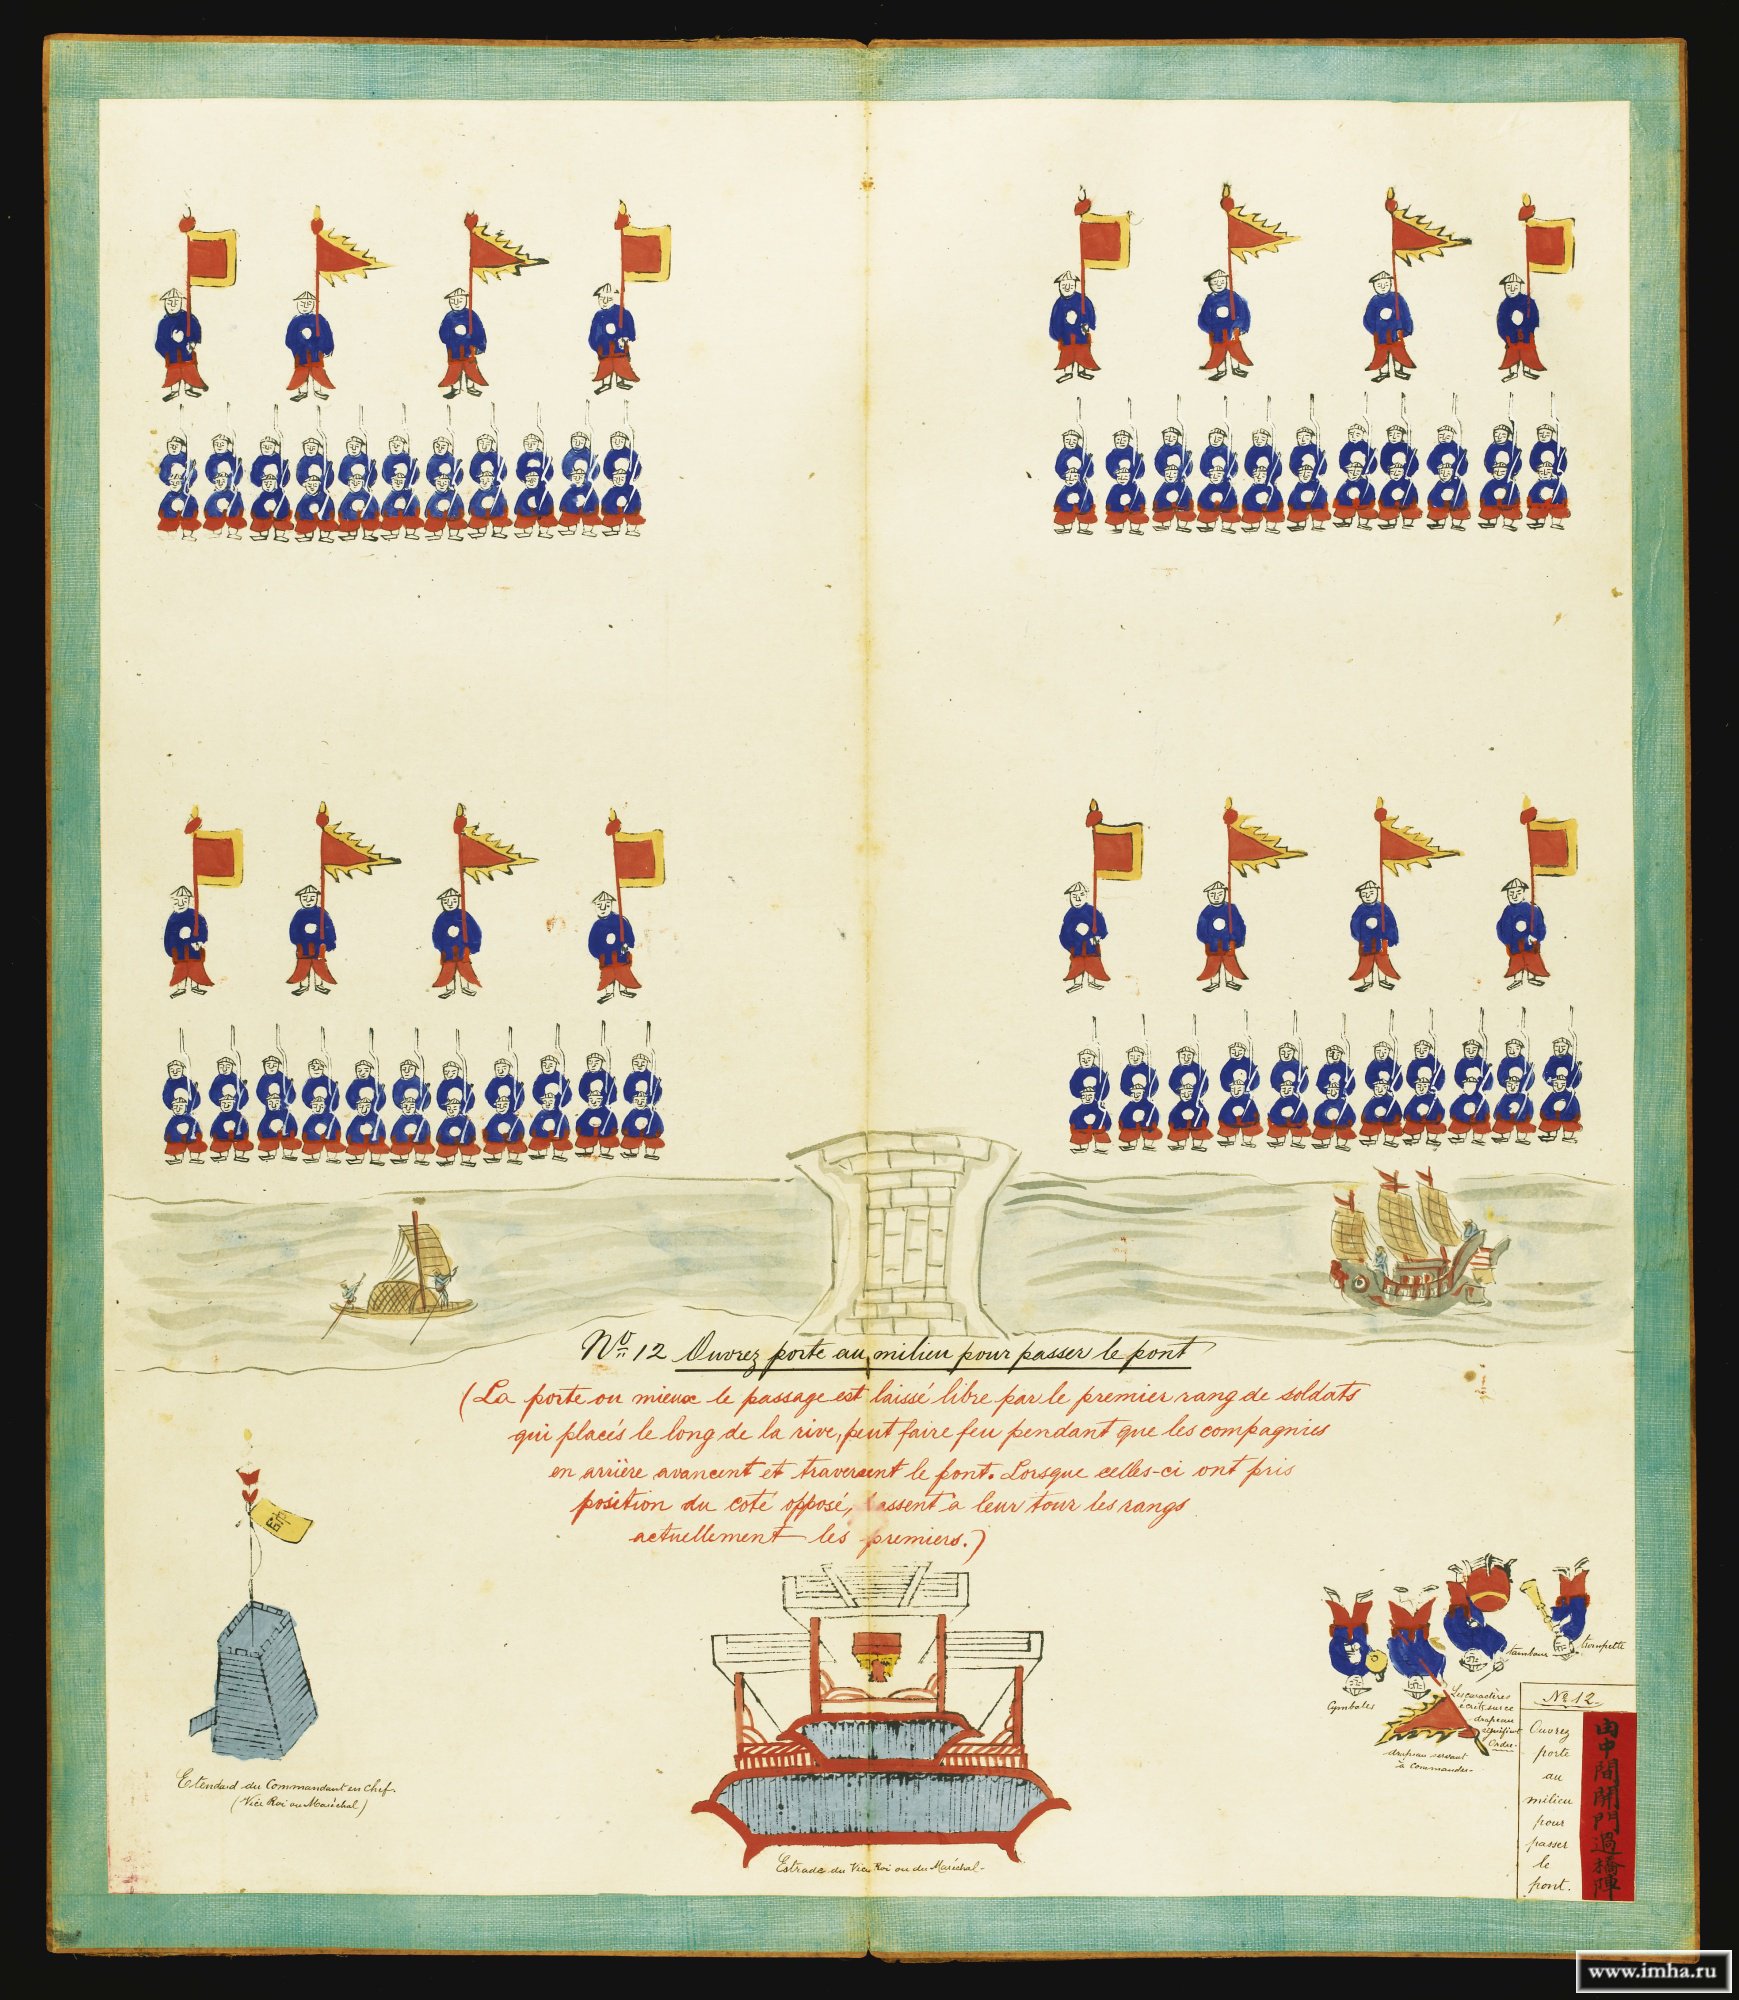 No 12 Ouvrez porte au milieu pour passer le pont
(La porte ou mieux le passage est laissé libre par le premier rang de soldats
qui placés le long de la rive, peut faire feu pendant que les compagnies
en arrière avancent et traversent le pont. Lorsque celles-ci ont pris
position du coté opposé, passent à leur tour les rangs
actuellement les premiers.)
Etendard du Commandant en chef.
(Vice Roi ou Maréchal)
Estrade du Vice Roi ou du Maréchal-
Cymbales
tambour
trompette
Les caractères
écrits sur ce
drapeau
signifient
Ordre-
drapeau servant
à commander-
No 12.
Ouvrez
porte
au
milieu
pour
passer
le
pont.
由中間開門過橋陣
www.imha.ru